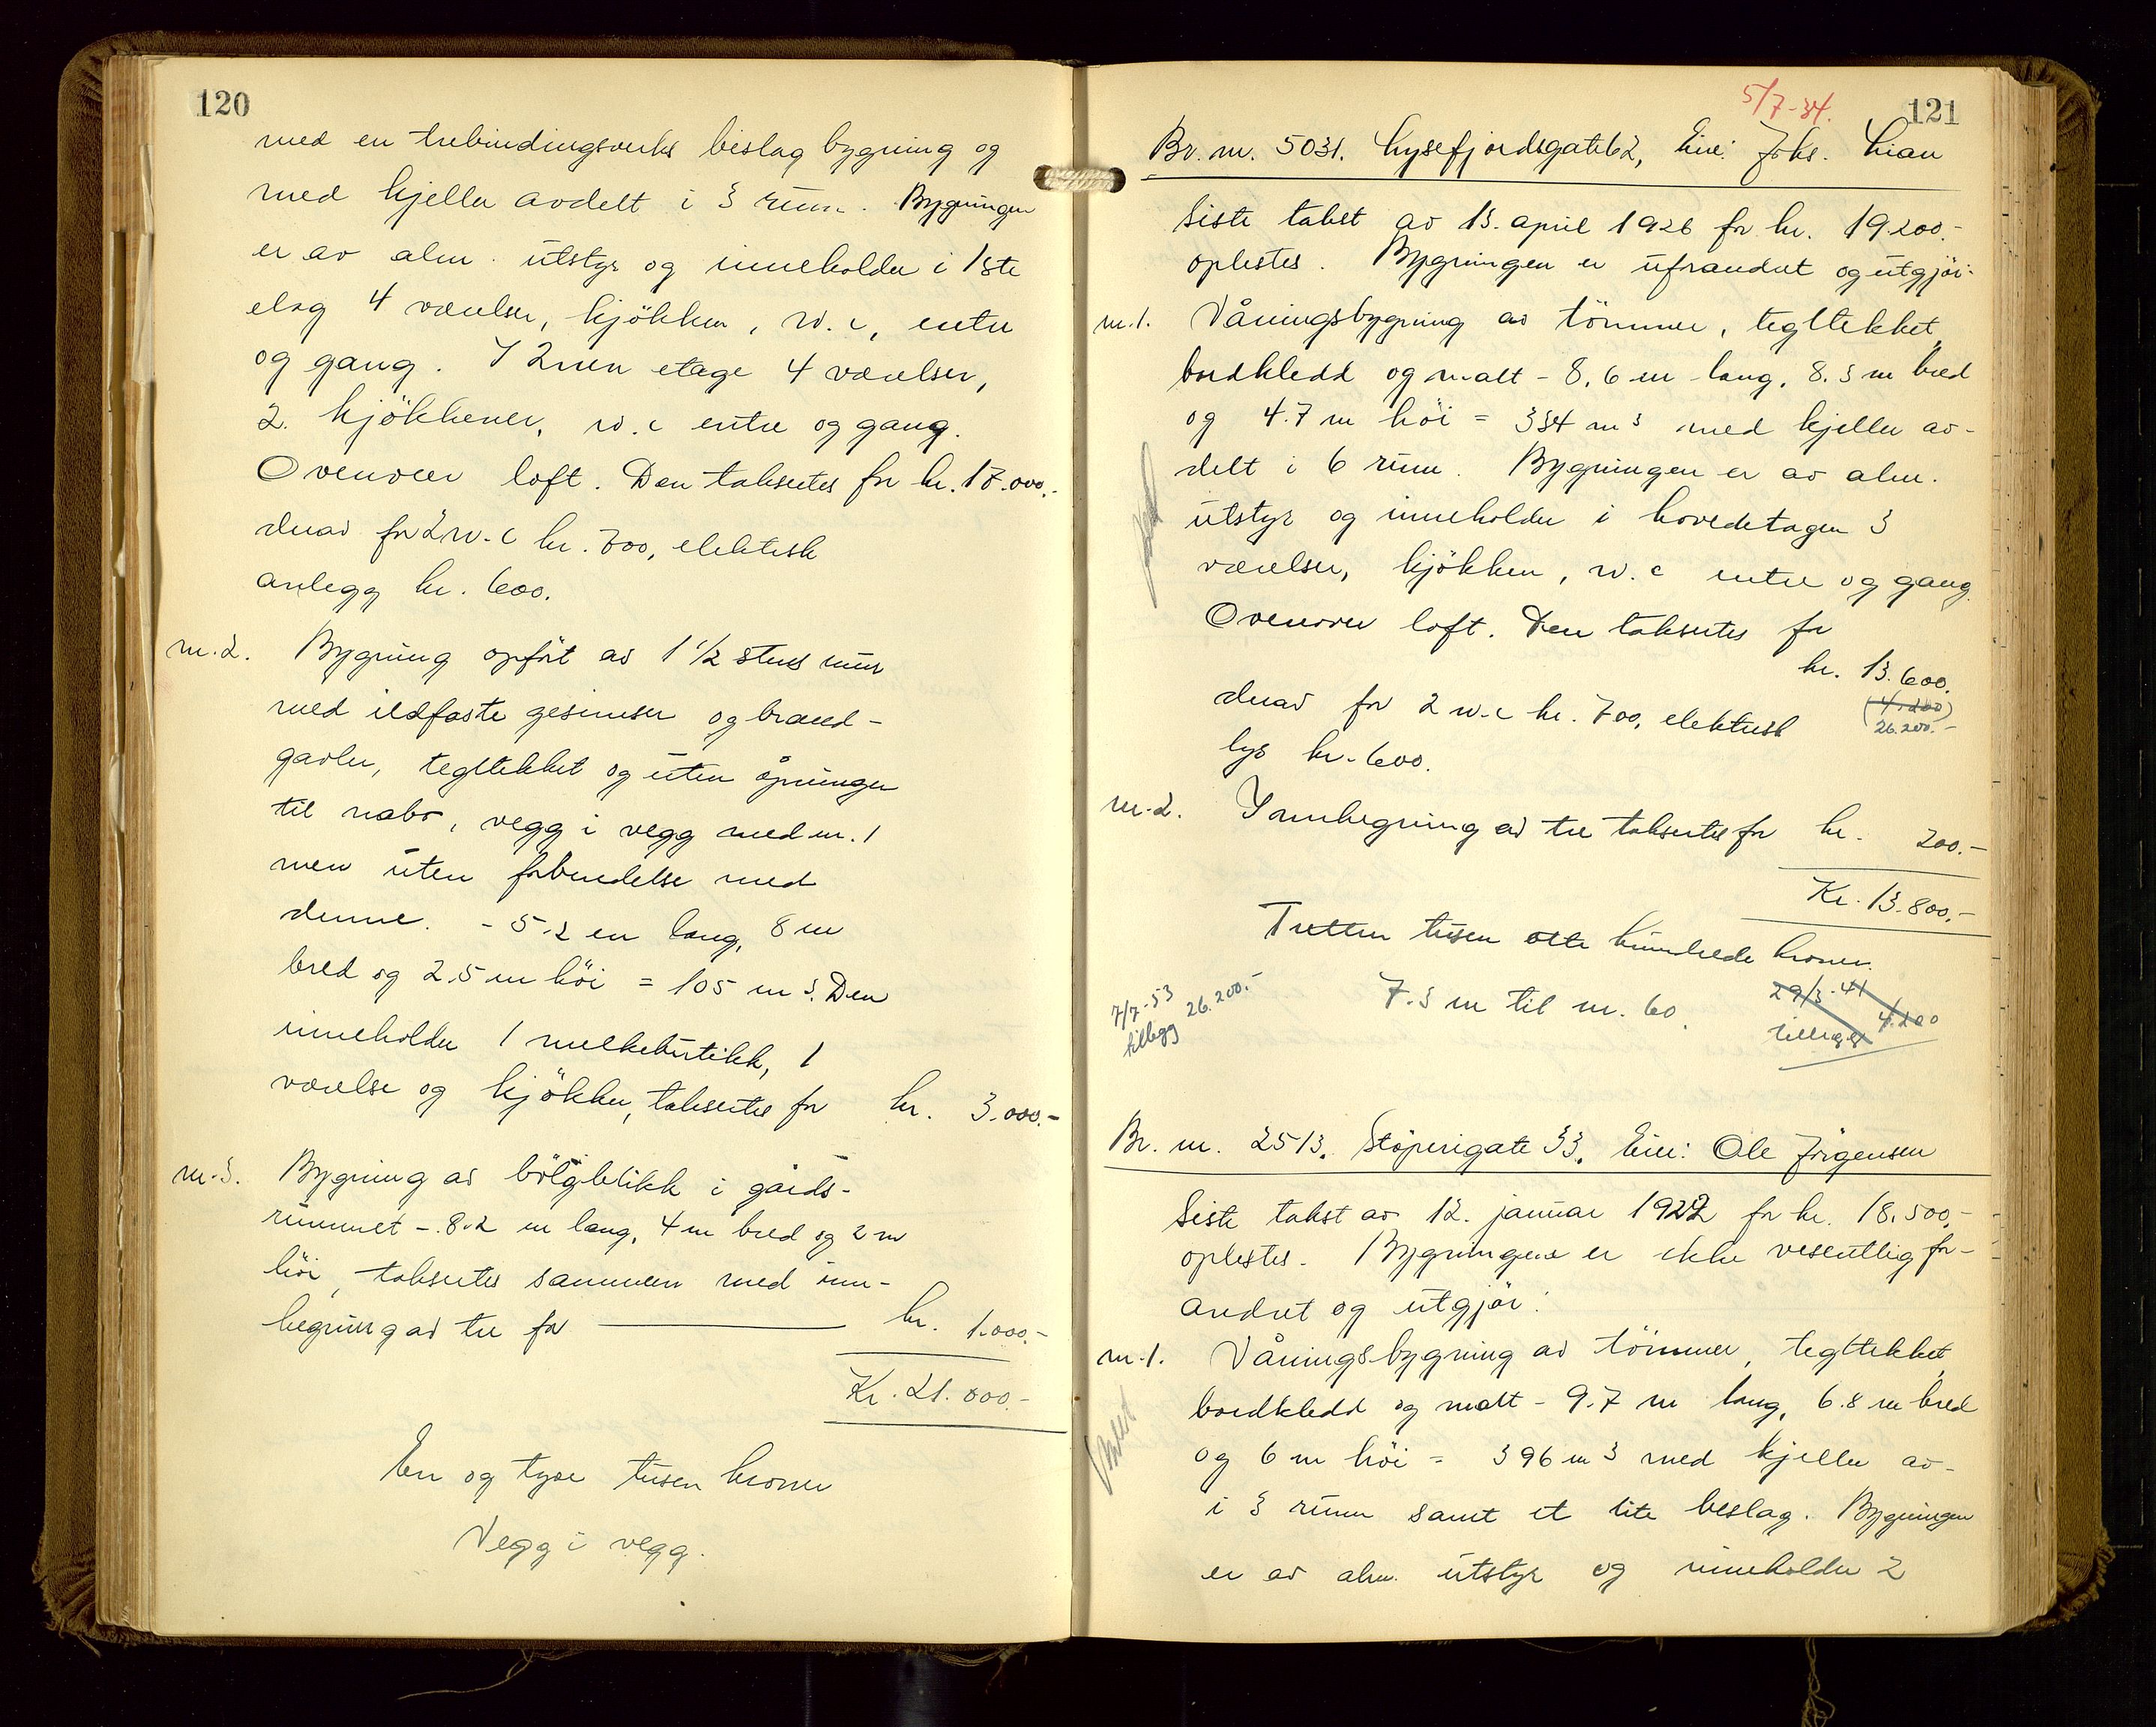 120
med en trebindingsverks bislag bygning og
med kjeller avdelt i 3 rum. Bygningen
er av alm. utstyr og inneholder i 1ste
etag 4 værelser, kjökken, w.c, entre
og gang. I 2nen etage 4 værelser,
2. kjökkener, w.c entre og gang.
Ovenover loft. Den takseres for kr. 17.000.-
derav for 2 w.c kr. 700, elektrisk
anlegg kr. 600.
nr. 2. Bygning opfört av 1 1/2 stens mur
med ildfaste gesimser og brand-
gavler, tegltekket og uten åpninger
til nabo, vegg i vegg med nr. 1
men uten forbindelse med
denne. - 5.2 m lang, 8 m
bred og 2.5 m höi = 105 m3. Den
inneholder 1 melkebutikk, 1
værelse og kjökken, takseres for kr. 3.000.-
nr. 3. Bygning av bölgeblikk i gårds-
rummet - 8.2 m lang, 4 m bred og 2 m
höi, takseres sammen med inn-
hegning av tre for kr. 1.000.-
Kr. 21.000.-
En og tyve tusen kroner
Vegg i vegg.
5/7-34.
121
Br. nr. 5031. Lysefjordsgate 62, Eier: Johs. Lian
Siste takst av 13. april 1926 for kr. 19200.-
oplestes. Bygningen er uforandret og utgjör:
nr. 1. Våningsbygning av tömmer, tegltekket,
bordkledd og malt - 8.6 m lang, 8.3 m bred
og 4.7 m höi = 334 m3 med kjeller av-
delt i 6 rum. Bygningen er av alm.
utstyr og inneholder i hovedetagen 3
værelser, kjökken, w.c entre og gang.
Ovenover loft. Den takseres for
kr. 13.600.
(4.200)
26.200.-
derav for 2 w.c kr. 700, elektrisk
lys kr. 600.
nr. 2. Innhegning av tre takseres for kr. 200.-
Kr. 13.800.-
Tretten tusen otte hundrede kroner.
7/7-53
tillegg 26.200.-
7.3 m til nr. 60.
29/3-41
tillegg 4.200
Br. nr. 2513. Stöperigate 33. Eier: Ole Jörgensen
Siste takst av 12. januar 1922 for kr. 18.500.-
oplestes. Bygningene er ikke vesentlig for-
andret og utgjör:
nr. 1. Våningsbygning av tömmer, tegltekket,
bordkledd og malt - 9.7 m lang, 6.8 m bred
og 6 m höi = 396 m3 med kjeller av-
i 3 rum samt et lite beslag. Bygningen
er av alm. utstyr og inneholder 2